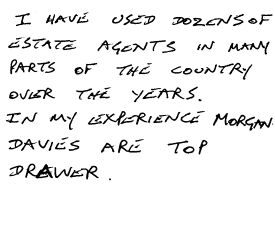 I HAVE USED DOZENS OF
ESTATE AGENTS IN MANY
PARTS OF THE COUNTRY
OVER THE YEARS.
IN MY EXPERIENCE MORGAN
DAVIES ARE TOP
DRAWER.